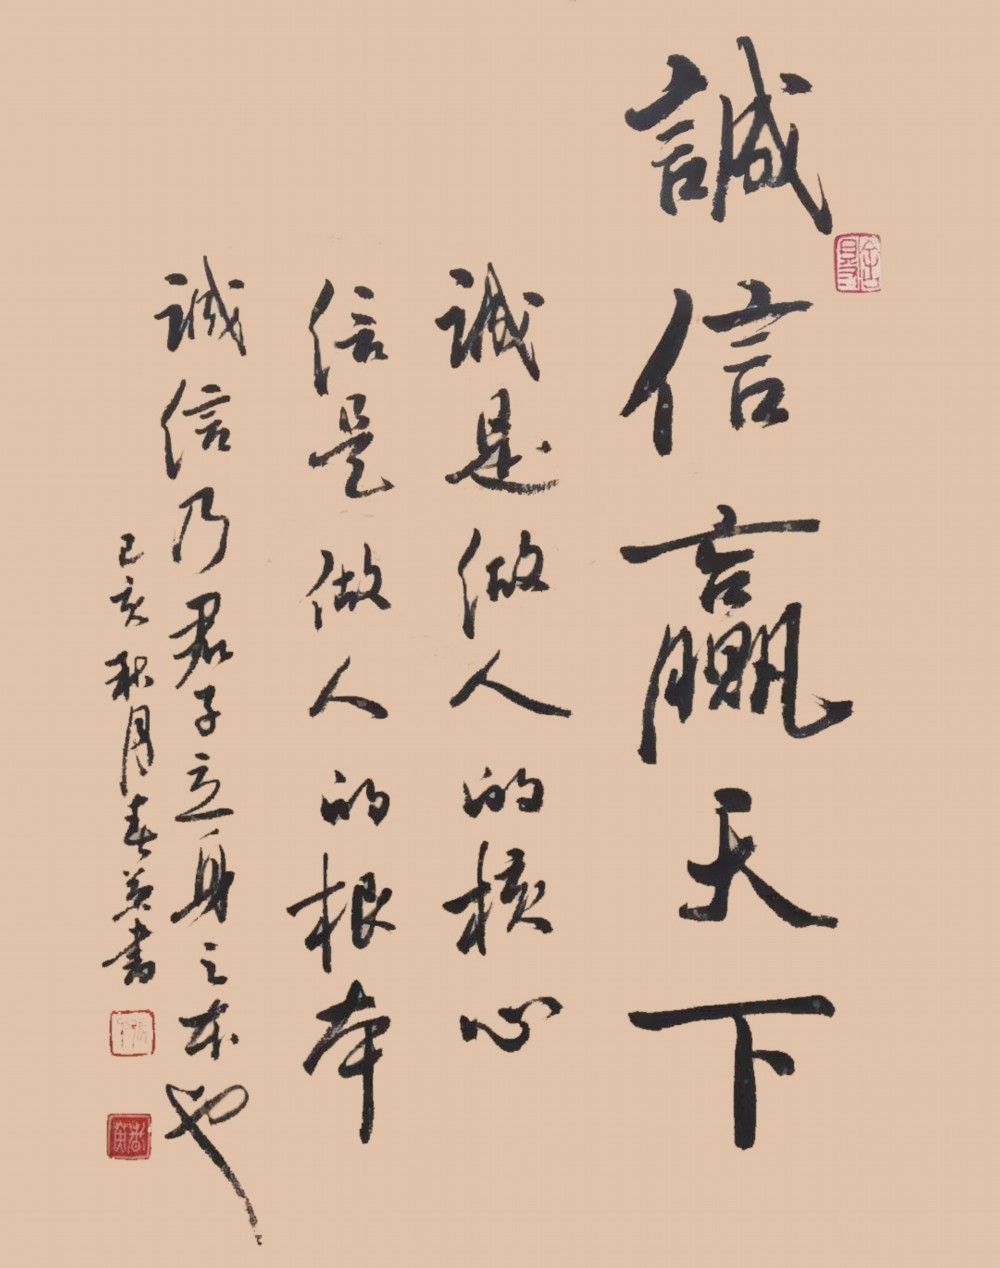 誠信贏天下
诚是做人的核心
信是做人的根本
诚信乃君子立身之本也
己亥秋月春英书